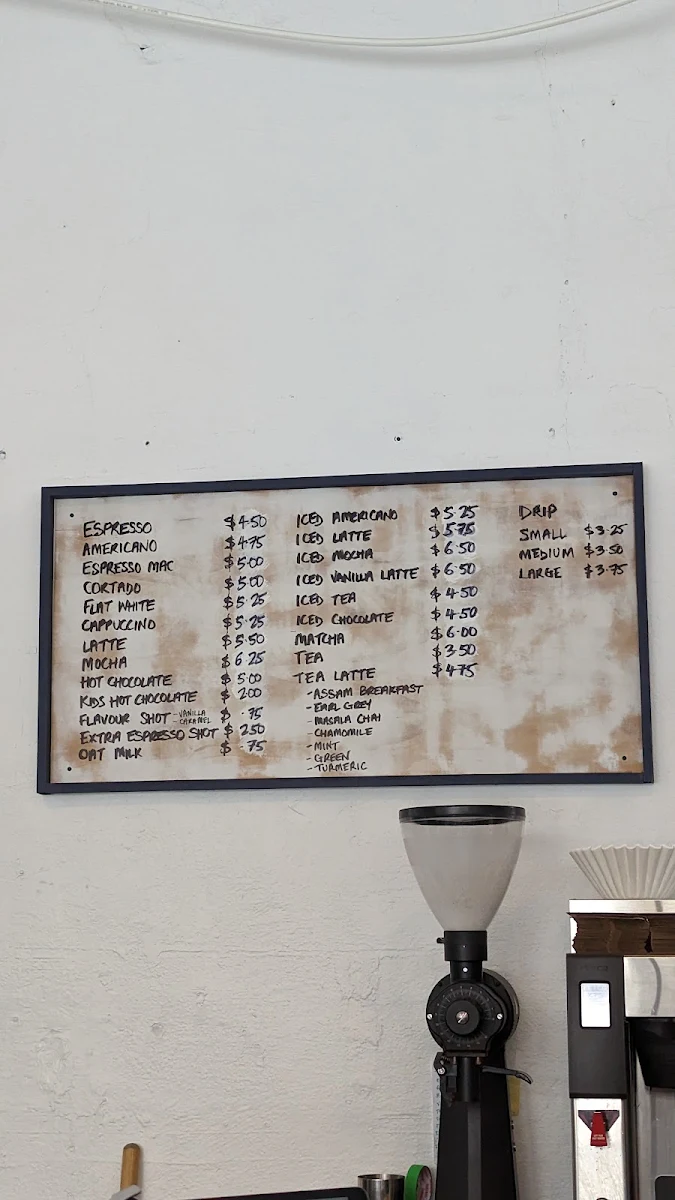 ESPRESSO $4.50
AMERICANO $4.75
ESPRESSO MAC $5.00
CORTADO $5.00
FLAT WHITE $5.25
CAPPUCCINO $5.25
LATTE $5.50
MOCHA $6.25
HOT CHOCOLATE $5.00
KIDS HOT CHOCOLATE $2.00
FLAVOUR SHOT - VANILLA $ .75
- CARAMEL
EXTRA ESPRESSO SHOT $2.50
OAT MILK $ .75
ICED AMERICANO $5.25
ICED LATTE $5.75
ICED MOCHA $6.50
ICED VANILLA LATTE $6.50
ICED TEA $4.50
ICED CHOCOLATE $4.50
MATCHA $6.00
TEA $3.50
TEA LATTE $4.75
- ASSAM BREAKFAST
- EARL GREY
- MASALA CHAI
- CHAMOMILE
- MINT
- GREEN
- TURMERIC
DRIP
SMALL $3.25
MEDIUM $3.50
LARGE $3.75